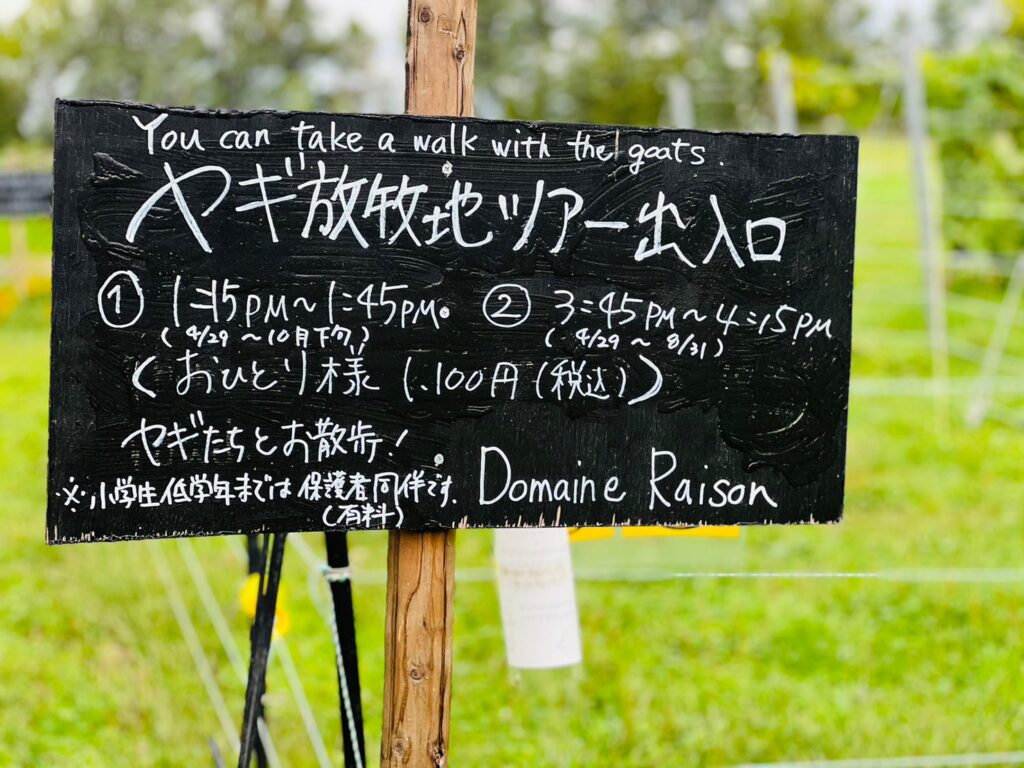 You can take a walk with the goats.
ヤギ放牧地ツアー出入口
① 1:15PM～1:45PM. ② 3:45PM～4:15PM
(4/29～10月下旬) (4/29～8/31)
〈おひとり様 1.100円(税込)〉
ヤギたちとお散歩!
※小学生低学年までは保護者同伴です.
(有料)
Domaine Raison